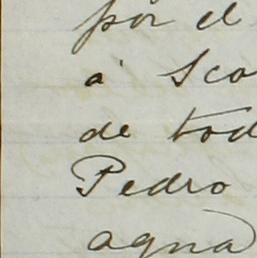 por el
á Sco
de tod
Pedro
agua